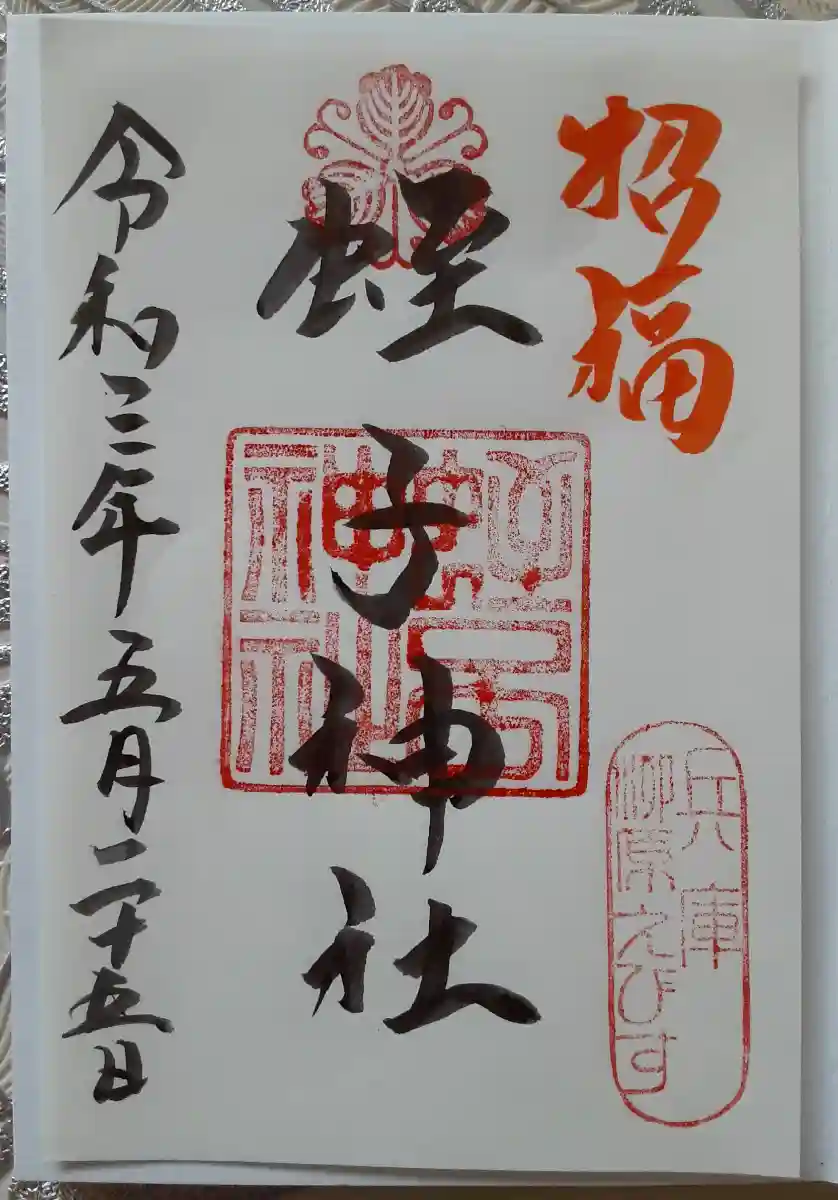 招福
兵庫
柳原えびす
蛭子神社
蛭子神社
令和三年五月二十五日